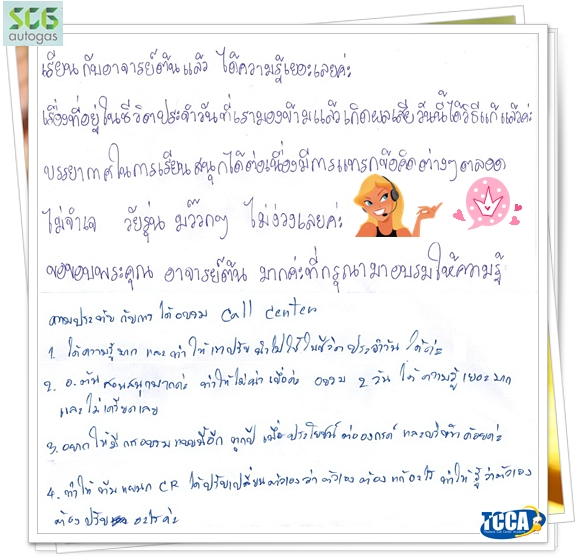 SCG
autogas
เรียนกับอาจารย์ต้นแล้ว ได้ความรู้เยอะเลยค่ะ
เรื่องที่อยู่ในชีวิตประจำวันที่เรามองข้ามแล้วเกิดผลเสียวันนี้ได้วิธีแก้แล้วค่ะ
บรรยากาศในการเรียนสนุกได้ต่อเนื่องมีการแทรกข้อคิดต่างๆตลอด
ไม่จำเจ วัยรุ่น มว๊ากๆ ไม่ง่วงเลยค่ะ
ขอขอบพระคุณ อาจารย์ต้น มากค่ะที่กรุณามาอบรมให้ความรู้
ความประทับ กับการ ได้อบรม Call Center
1. ได้ความรู้มาก และทำให้เราปรับนำไปใช้ในชีวิตประจำวัน ได้ค่ะ
2. อ.ต้น สอนสนุกมากค่ะ ทำให้ไม่น่าเบื่อค่ะ อบรม 2 วัน ได้ความรู้เยอะมาก
และไม่เครียดเลย
3. อยากให้มีการอบรมแบบนี้อีก ทุกปี เพื่อประโยชน์ต่อองค์กร และบริษัทด้วยค่ะ
4. ทำให้ทีมแผนก CR ได้ปรับเปลี่ยนตัวเองว่า ตัวเองต้อง แก้อะไร ทำให้รู้ว่าตัวเอง
ต้องปรับ อะไรค่ะ
TCCA